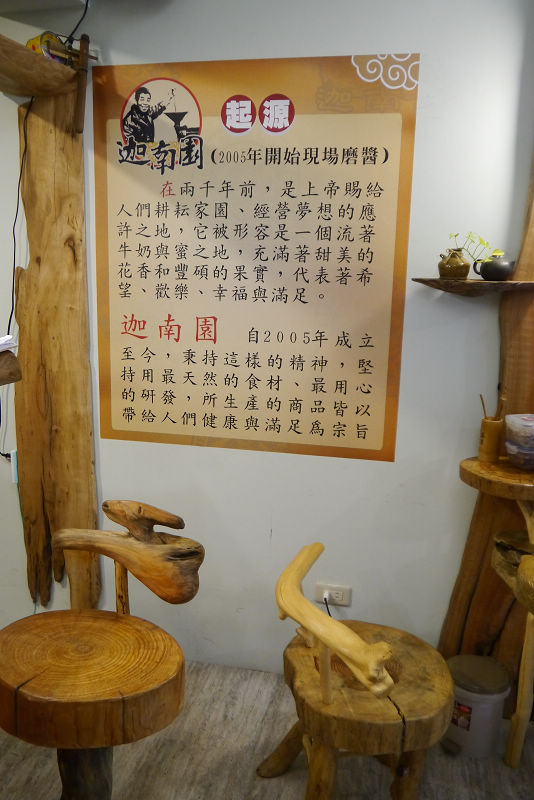 起源
迦南園(2005年開始現場磨醬)
在兩千年前，是上帝賜給
人們耕耘家園、經營夢想的應
許之地，它被形容是一個流著
牛奶與蜜之地，充滿著甜美的
花香和豐碩的果實，代表著希
望、歡樂、幸福與滿足。
迦南園 自2005年成立
至今，秉持這樣的精神，堅
持用最天然的食材、最用心
的研發，所生產的商品皆以
帶給人們健康與滿足為宗旨